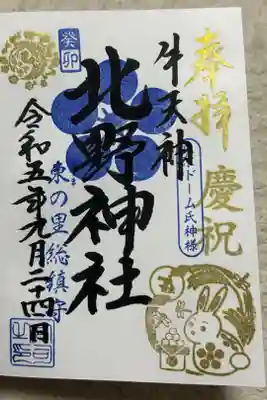 奉拝 慶祝
牛天神
ドーム氏神様
北野神社
癸卯
東の里総鎮守
令和五年九月二十四日